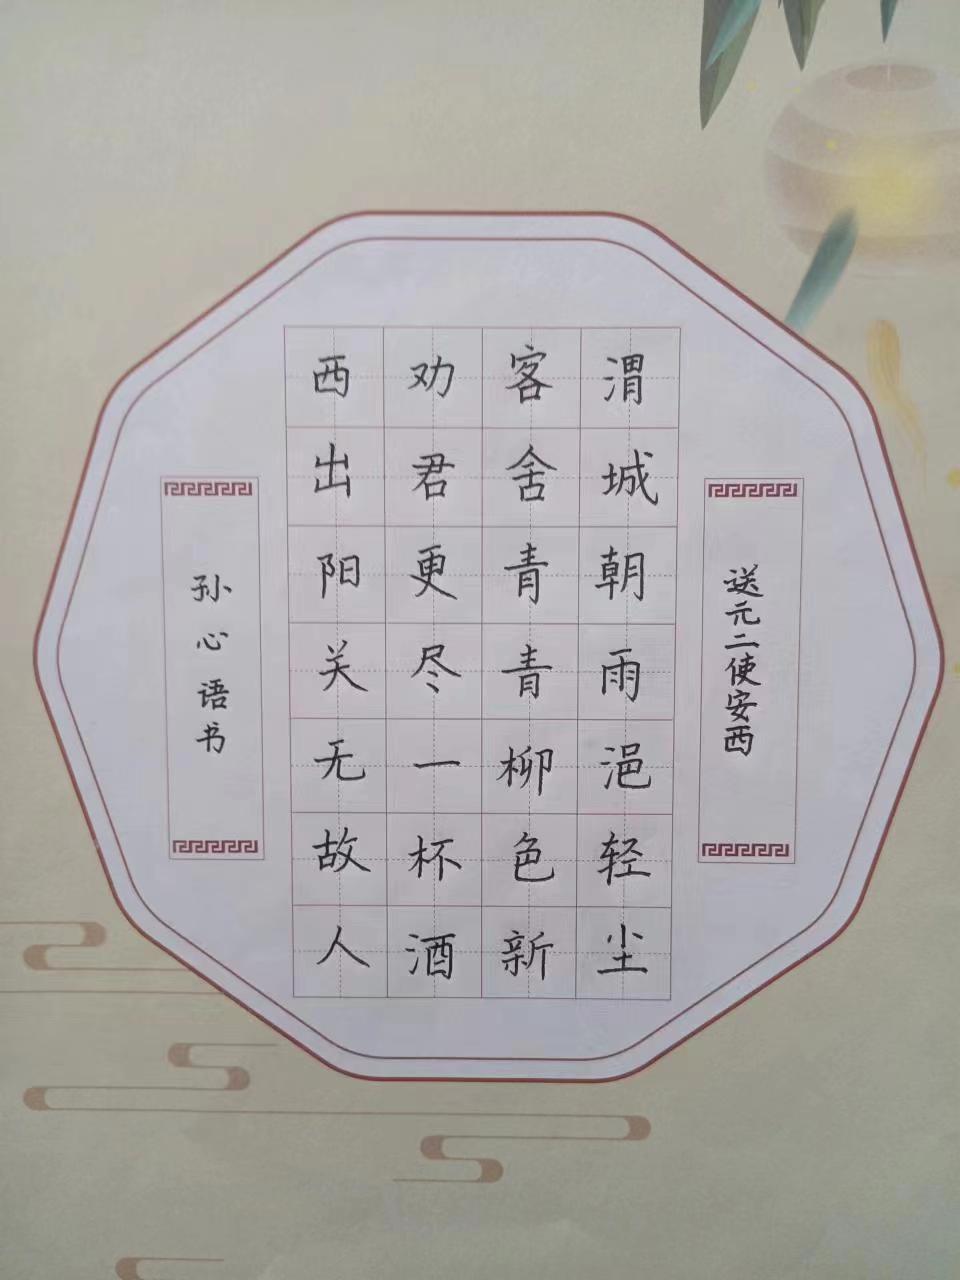 送元二使安西
渭城朝雨浥轻尘
客舍青青柳色新
劝君更尽一杯酒
西出阳关无故人
孙心语书